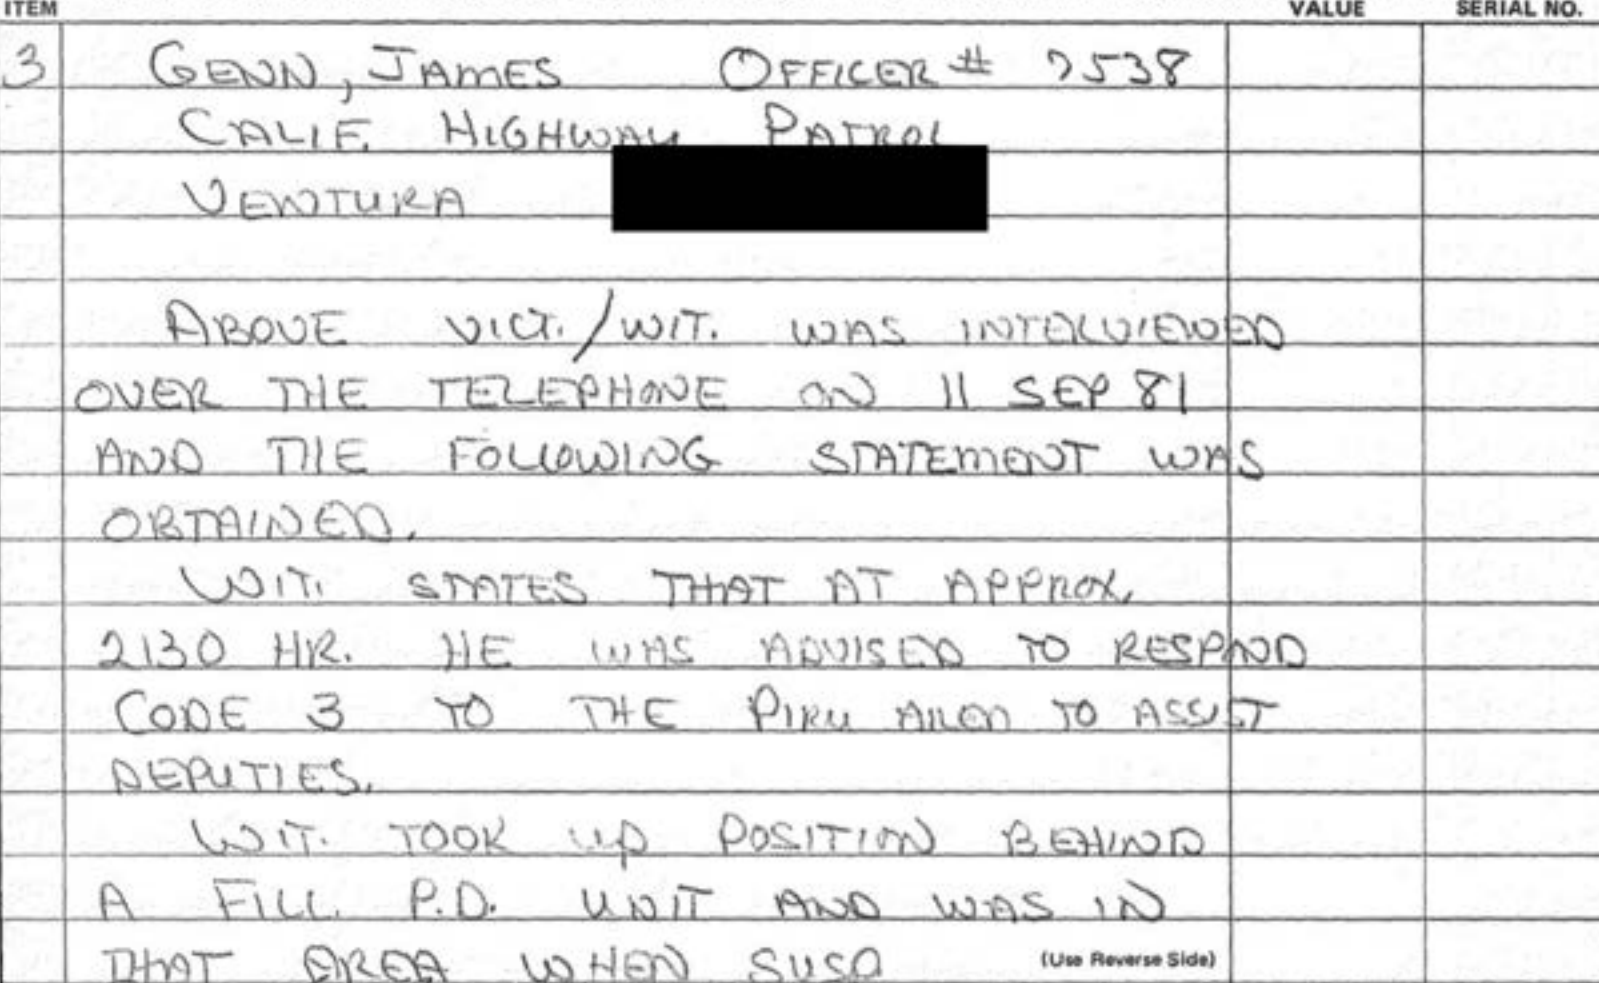 ITEM VALUE SERIAL NO.
3 GENN, JAMES OFFICER # 7538
CALIF. HIGHWAY PATROL
VENTURA
ABOVE VICT./WIT. WAS INTERVIEWED
OVER THE TELEPHONE ON 11 SEP 81
AND THE FOLLOWING STATEMENT WAS
OBTAINED.
WIT. STATES THAT AT APPROX.
2130 HR. HE WAS ADVISED TO RESPOND
CODE 3 TO THE PIRU AREA TO ASSIST
DEPUTIES.
WIT. TOOK UP POSITION BEHIND
A FILL. P.D. UNIT AND WAS IN
THAT AREA WHEN SUSP
(Use Reverse Side)